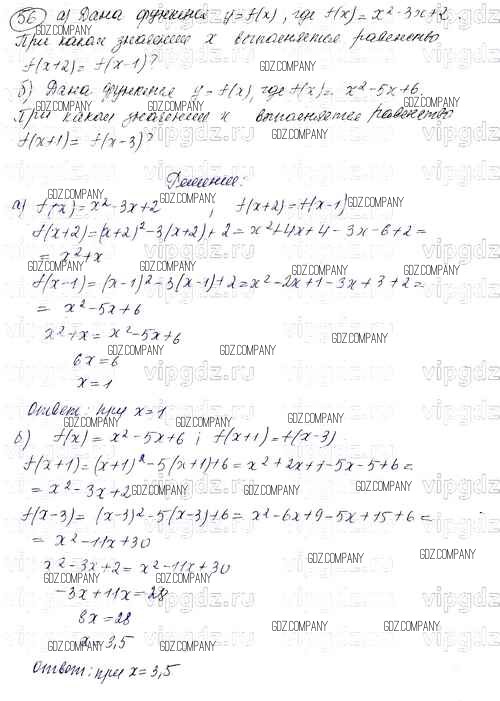 56 а) Дана функция y = f(x), где f(x) = x² - 3x + 2.
При каком значении x выполняется равенство
f(x+2) = f(x-1)?
б) Дана функция y = f(x), где f(x) = x² - 5x + 6.
При каком значении x выполняется равенство
f(x+1) = f(x-3)?
Решение:
а) f(x) = x² - 3x + 2 ; f(x+2) = f(x-1)
f(x+2) = (x+2)² - 3(x+2) + 2 = x² + 4x + 4 - 3x - 6 + 2 =
= x² + x
f(x-1) = (x-1)² - 3(x-1) + 2 = x² - 2x + 1 - 3x + 3 + 2 =
= x² - 5x + 6
x² + x = x² - 5x + 6
6x = 6
x = 1
Ответ: при x = 1
б) f(x) = x² - 5x + 6 ; f(x+1) = f(x-3)
f(x+1) = (x+1)² - 5(x+1) + 6 = x² + 2x + 1 - 5x - 5 + 6 =
= x² - 3x + 2
f(x-3) = (x-3)² - 5(x-3) + 6 = x² - 6x + 9 - 5x + 15 + 6 =
= x² - 11x + 30
x² - 3x + 2 = x² - 11x + 30
-3x + 11x = 28
8x = 28
x = 3,5
Ответ: при x = 3,5